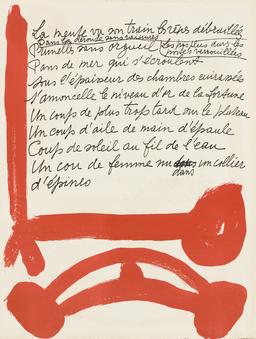 La meute va son train brèves débraillée
Dans la déroute sans rainures
Prunelle sans orgueil Les pas plus durs les
portes verrouillées
Pans de mer qui s'écroulent
Sous l'épaisseur des chambres cuirassées
S'amoncelle le niveau d'or de la fortune
Un coup de plus trop tard sur le plateau
Un coup d'aile de main d'épaule
Coup de soleil au fil de l'eau
Un cou de femme dans un collier
d'épines